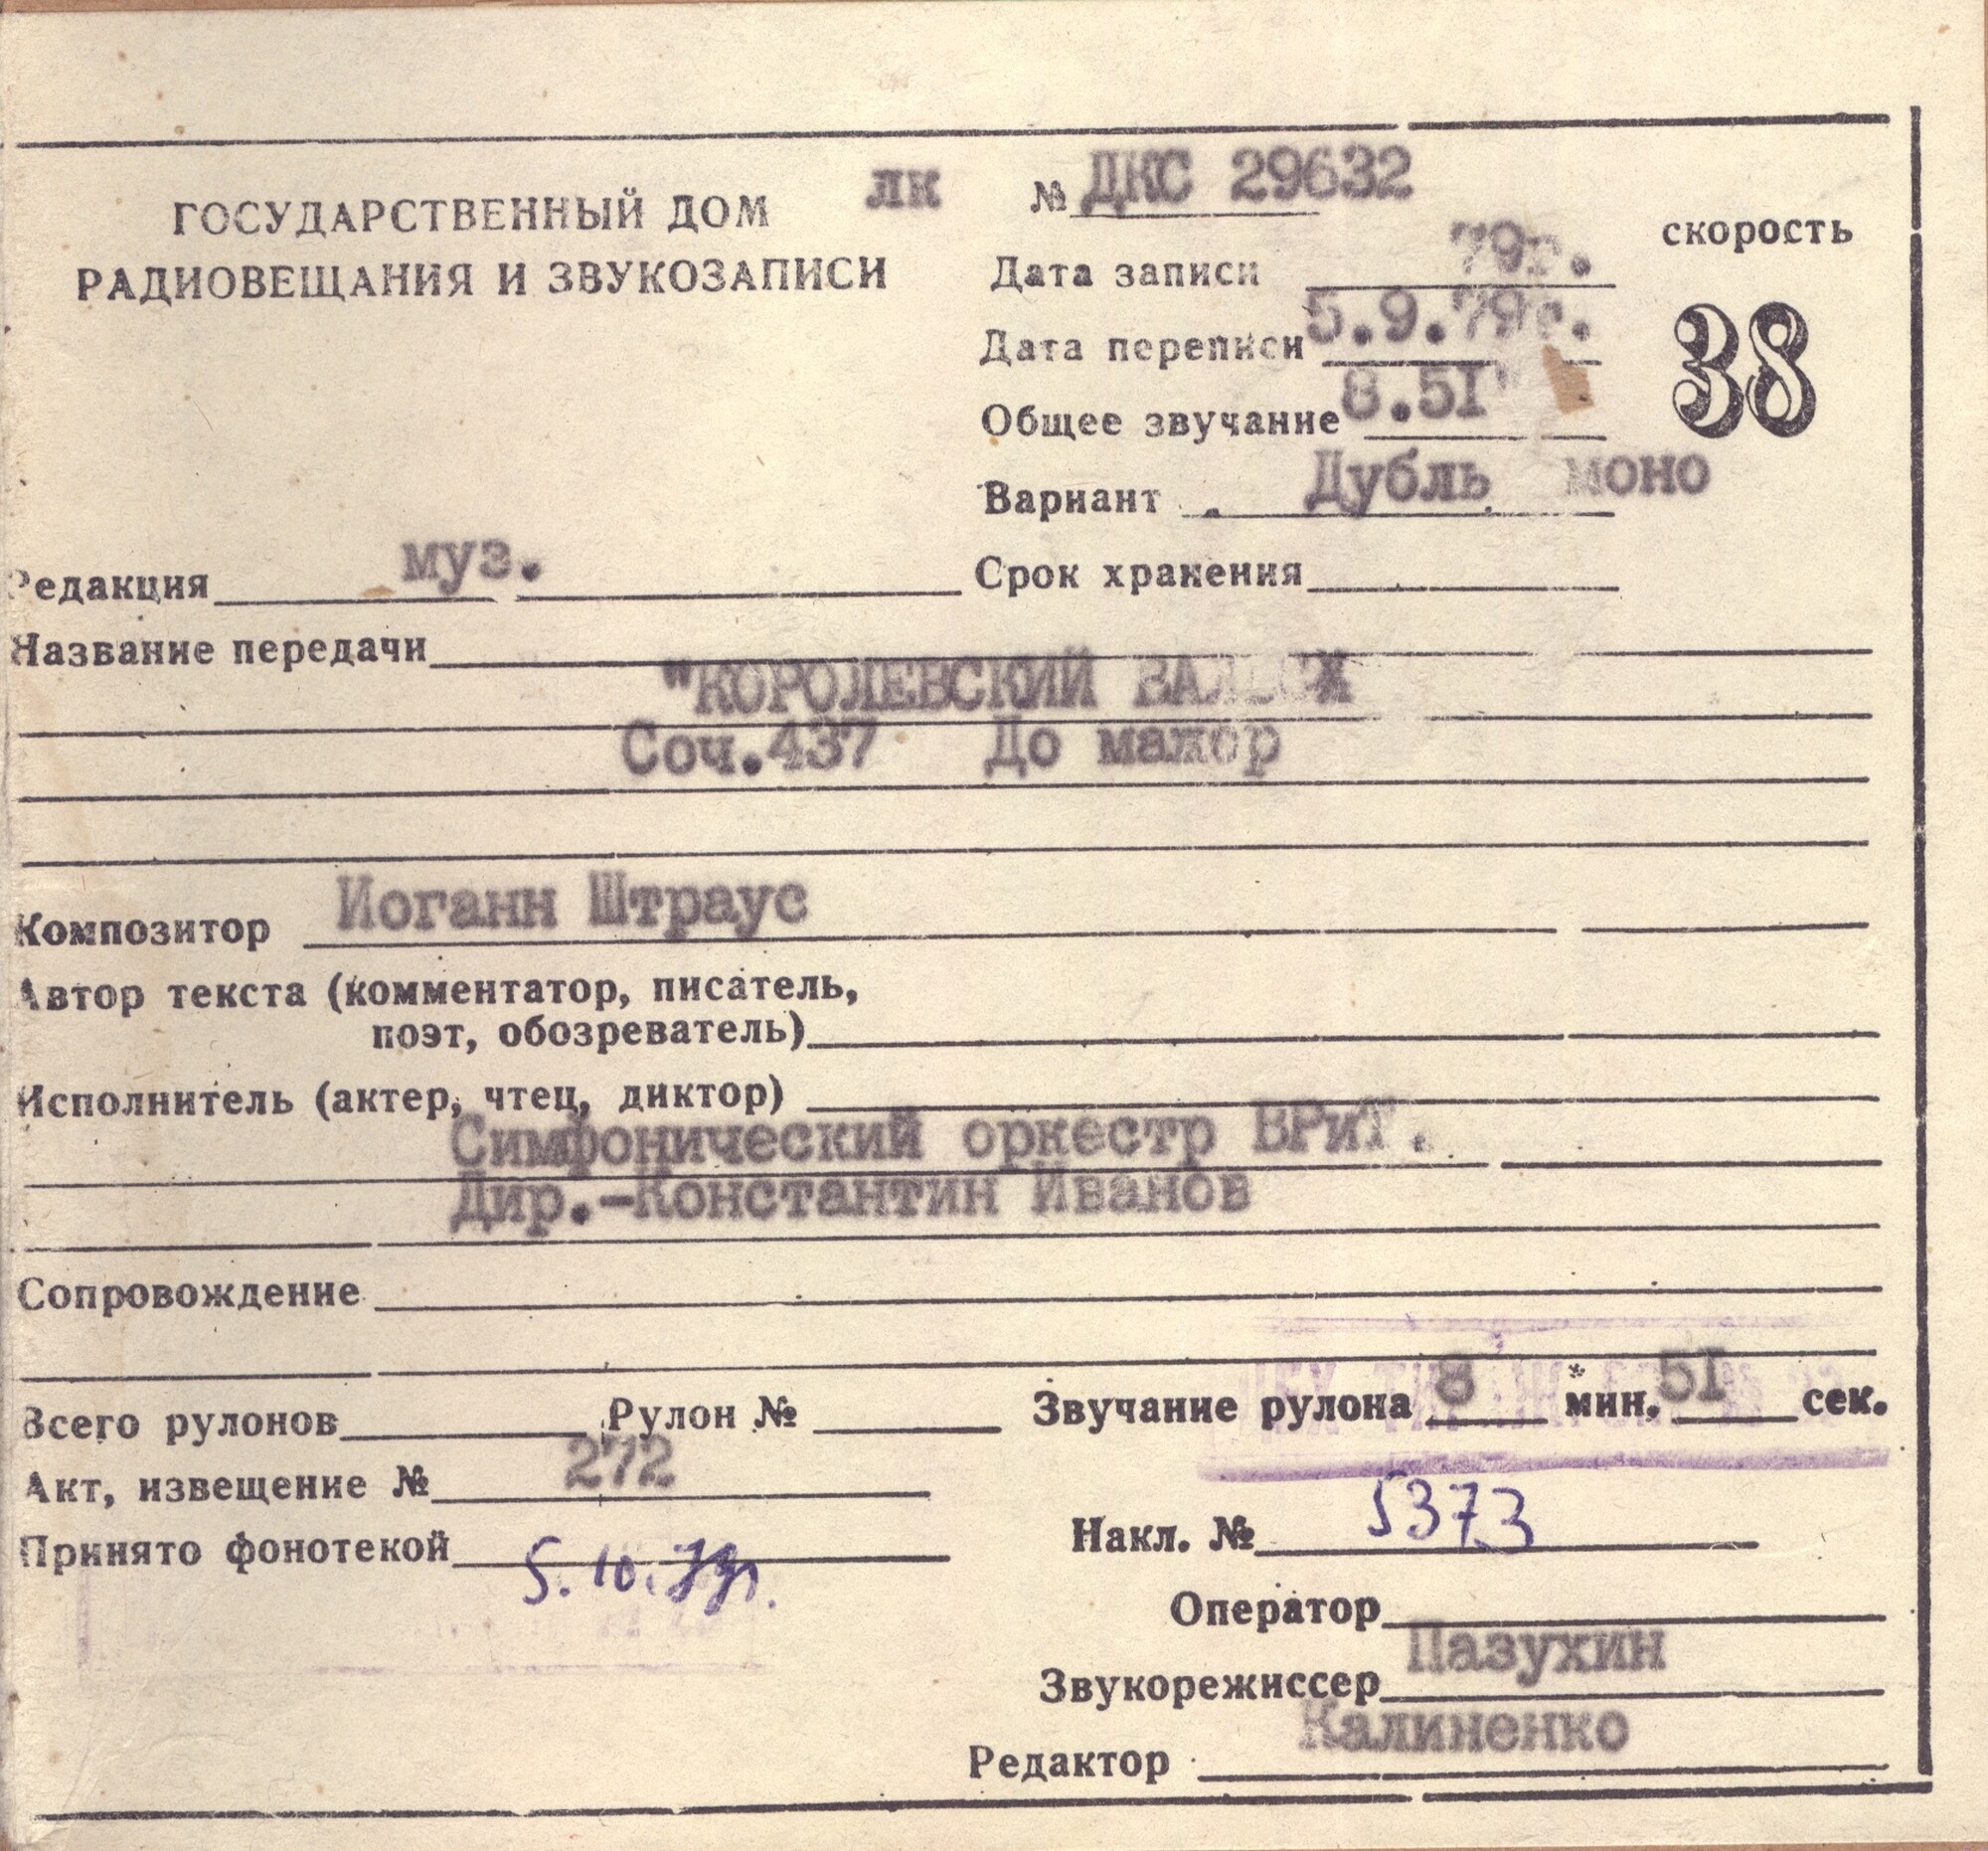 лк № ДКС 29632
ГОСУДАРСТВЕННЫЙ ДОМ
РАДИОВЕЩАНИЯ И ЗВУКОЗАПИСИ
скорость
38
Дата записи 79г.
Дата переписи 5.9.79г.
Общее звучание 8.51"
Вариант Дубль моно
Редакция муз.
Срок хранения
Название передачи
"КОРОЛЕВСКИЙ
Соч.437 До мажор
Композитор Иоганн Штраус
Автор текста (комментатор, писатель,
поэт, обозреватель)
Исполнитель (актер, чтец, диктор)
Симфонический оркестр ВРиТ.
Дир.-Константин Иванов
Сопровождение
Всего рулонов Рулон № Звучание рулона 8 мин. 51 сек.
Акт, извещение № 272
Накл. № 5373
Принято фонотекой 5.10.79г.
Оператор
Звукорежиссер Пазухин
Редактор Калиненко